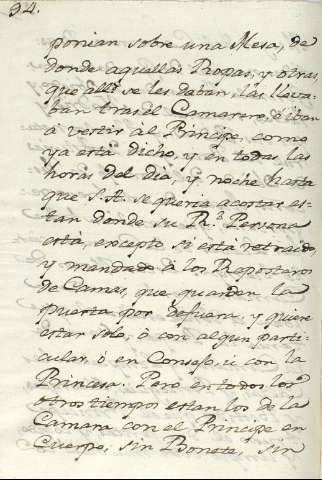 94.
ponian sobre una Mesa, de
donde aquellas Ropas, y otras,
que alli se les daban, las lleva-
ban tras el Camarero, è iban
à vestir al Principe, como
ya està dicho, y en todas las
horas del dia, y noche hasta
que S. A. se queria acostar es-
tan donde su R.ˡ Persona
està, excepto si està retraido,
y mandado à los Reposteros
de Camas, que guarden la
puerta por defuera, y quiere
estar solo, ò con algun parti-
cular, ò en Consejo, ù con la
Princesa. Pero en todos los
otros tiempos estan los de la
Camara con el Principe en
Cuerpo, sin Bonete, sin